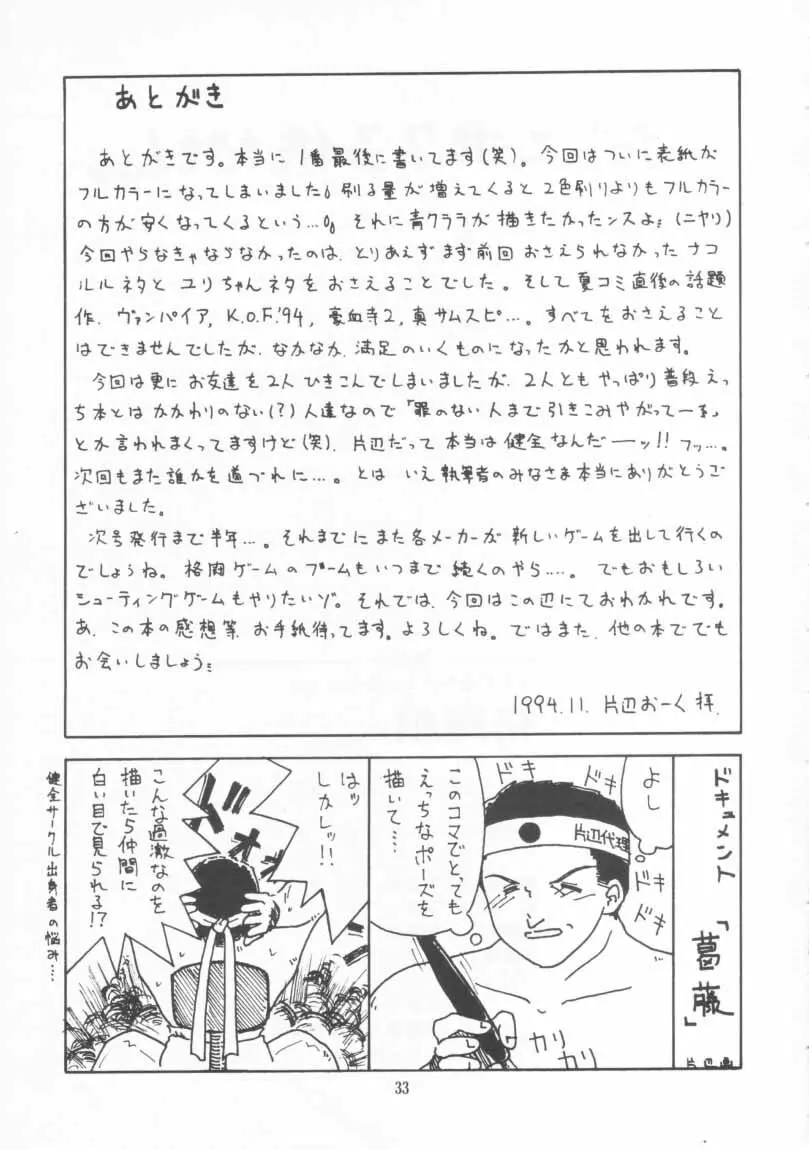 あとがき
あとがきです。本当に1番最後に書いてます(笑)。今回はついに表紙が
フルカラーになってしまいました。刷る量が増えてくると2色刷りよりもフルカラー
の方が安くなってくるという…。それに青クララが描きたかったンスよ(ニヤリ)
今回やらなきゃならなかったのは、とりあえずまず前回おさえられなかったナコ
ルルネタとユリちゃんネタをおさえることでした。そして夏コミ直後の話題
作、ヴァンパイア, K.O.F.'94, 豪血寺2, 真サムスピ…。すべてをおさえること
はできませんでしたが、なかなか、満足のいくものになったかと思われます。
今回は更にお友達を2人ひきこんでしまいましたが、2人ともやっぱり普段えっ
ち本とはかかわりのない(?)人達なので「罪のない人まで引きこみやがってー」
とか言われまくってますけど(笑)、片辺だって本当は健全なんだーッ!!フッ…。
次回もまた誰かを道づれに…。とはいえ執筆者のみなさま本当にありがとうご
ざいました。
次号発行まで半年…。それまでにまた各メーカーが新しいゲームを出して行くの
でしょうね。格闘ゲームのブームもいつまで続くのやら……。でもおもしろい
シューティングゲームもやりたいゾ。それでは、今回はこの辺にておわかれです。
あ、この本の感想等、お手紙待ってます。よろしくね。ではまた、他の本ででも
お会いしましょう
1994.11. 片辺おーく拝.
ドキュメント「葛藤」
よし
このコマでとっても
えっちなポーズを
描いて……
ドキ
ドキ
ドキ
ドキ
片辺代理
カリ
カリ
はッ
しかしッ!!
こんな過激なのを
描いたら仲間に
白い目で見られる!?
健全サークル出身者の悩み…
33